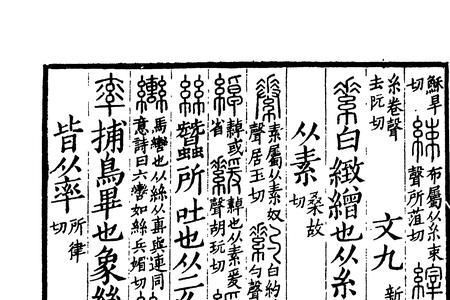 穌旱切 綀 布屬从糸束聲所菹切 縡
糸卷聲去阮切 文九 新
素 白緻繒也从糸
从素 桑故切
素屬从素収聲居玉切 白約 勺聲
繛或省 緩 繛也从素爰聲胡玩切
絲 蠶所吐也从二
轡 馬轡也从絲从軎與連同意詩曰六轡如絲兵媚切
率 捕鳥畢也象絲
皆从率 所律切